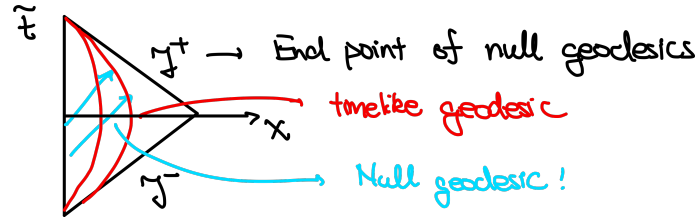 t̃
𝒥⁺ → End point of null geodesics
timelike geodesic
x
Null geodesic!
𝒥⁻